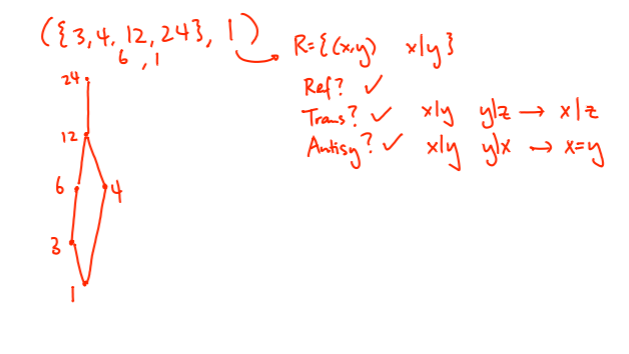 ({3,4,12,24}, 1)
6,1
R={(x,y) x|y}
Ref? ✓
Trans? ✓ x|y y|z → x|z
Antisy? ✓ x|y y|x → x=y
24
12
6 4
3
1